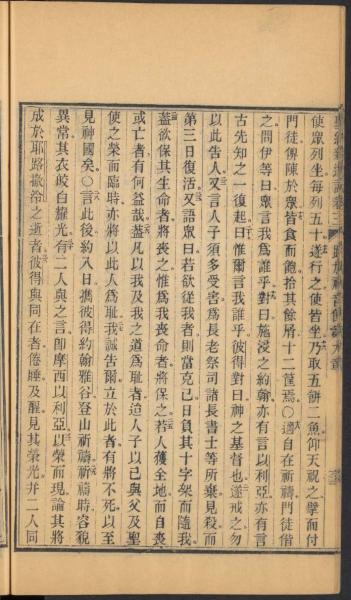 使眾列坐每列五十遂行之使皆坐乃取五餅二魚仰天祝之擘而付
門徒俾陳於眾皆食而飽拾其餘屑十二筐焉○適自在祈禱門徒偕
之問伊等曰眾言我為誰乎對曰施浸之約翰亦有言以利亞亦有言
古先知之一復起曰惟爾言我誰乎彼得對曰神之基督也遂戒之勿
以此告人又言人子須多受害為長老祭司諸長書士等所棄見殺而
第三日復活又語眾曰若欲從我者則當克己日負其十字架而隨我
蓋欲保其生命者將喪之惟為我喪命者將保之若人獲全地而自喪
或亡者有何益哉蓋凡以我及我之道為耻者迨人子以己與父及聖
使之榮而臨時亦將以此人為耻我誠告爾立於此者有將不死以至
見神國矣○言此後約入日攜彼得約翰雅谷登山祈禱祈禱時容貌
異常其衣皎白耀光有二人與之言即摩西以利亞以榮而現論其將
成於耶路撒冷之逝者彼得與同在者倦睡及醒見其榮光并二人同